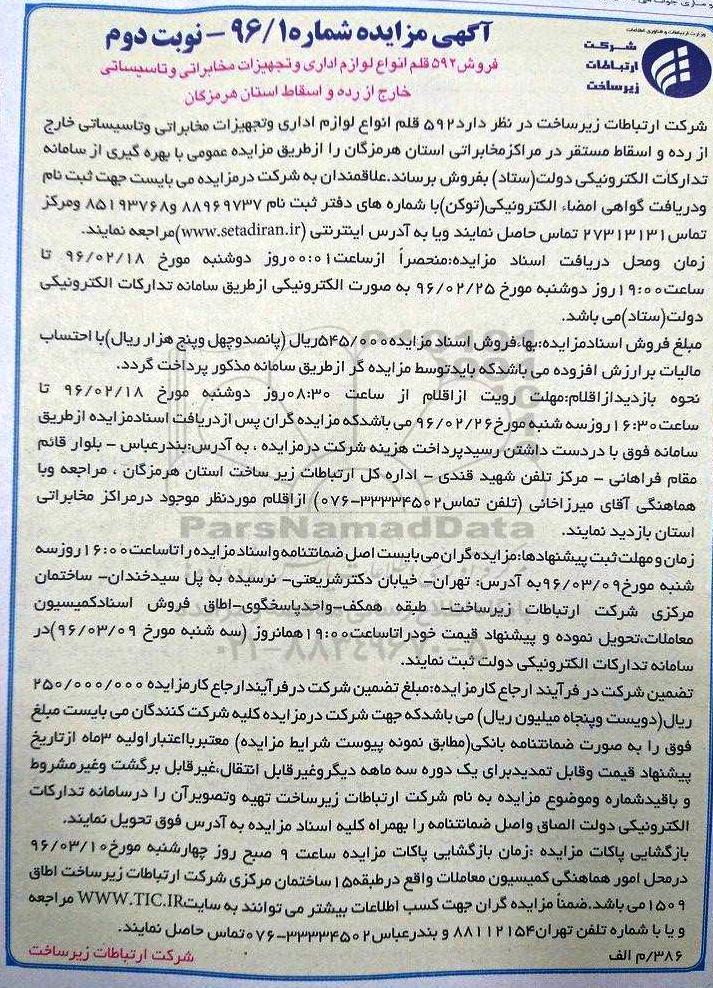 وزارت ارتباطات و فناوری اطلاعات
شرکت
ارتباطات
زیرساخت
آگهی مزایده شماره ۹۶/۱ - نوبت دوم
فروش ۵۹۲ قلم انواع لوازم اداری و تجهیزات مخابراتی و تاسیساتی
خارج از رده و اسقاط استان هرمزگان
شرکت ارتباطات زیرساخت در نظر دارد ۵۹۲ قلم انواع لوازم اداری وتجهیزات مخابراتی وتاسیساتی خارج
از رده و اسقاط مستقر در مراکزمخابراتی استان هرمزگان را ازطریق مزایده عمومی با بهره گیری از سامانه
تدارکات الکترونیکی دولت(ستاد) بفروش برساند.علاقمندان به شرکت درمزایده می بایست جهت ثبت نام
ودریافت گواهی امضاء الکترونیکی(توکن)با شماره های دفتر ثبت نام ۸۸۹۶۹۷۳۷ و۸۵۱۹۳۷۶۸ ومرکز
تماس۲۷۳۱۳۱۳۱ تماس حاصل نمایند ویا به آدرس اینترنتی (www.setadiran.ir)مراجعه نمایند.
زمان ومحل دریافت اسناد مزایده:منحصراً ازساعت۰۰:۰۱روز دوشنبه مورخ ۹۶/۰۲/۱۸ تا
ساعت۱۹:۰۰روز دوشنبه مورخ ۹۶/۰۲/۲۵ به صورت الکترونیکی ازطریق سامانه تدارکات الکترونیکی
دولت(ستاد)می باشد.
مبلغ فروش اسنادمزایده:بهاءفروش اسناد مزایده۵۴۵/۰۰۰ریال (پانصدوچهل وپنج هزار ریال)با احتساب
مالیات برارزش افزوده می باشدکه بایدتوسط مزایده گر ازطریق سامانه مذکور پرداخت گردد.
نحوه بازدیدازاقلام:مهلت رویت ازاقلام از ساعت ۰۸:۳۰روز دوشنبه مورخ ۹۶/۰۲/۱۸ تا
ساعت۱۶:۳۰روزسه شنبه مورخ۹۶/۰۲/۲۶ می باشدکه مزایده گران پس ازدریافت اسنادمزایده ازطریق
سامانه فوق با دردست داشتن رسیدپرداخت هزینه شرکت درمزایده ، به آدرس:بندرعباس - بلوار قائم
مقام فراهانی - مرکز تلفن شهید قندی - اداره کل ارتباطات زیر ساخت استان هرمزگان ، مراجعه وبا
هماهنگی آقای میرزاخانی (تلفن تماس۳۳۳۳۴۵۰۲-۰۷۶) ازاقلام موردنظر موجود درمراکز مخابراتی
استان بازدید نمایند.
ParsNamadData
زمان و مهلت ثبت پیشنهادها:مزایده گران می بایست اصل ضمانتنامه واسناد مزایده را تاساعت۱۶:۰۰روزسه
شنبه مورخ۹۶/۰۳/۰۹به آدرس: تهران- خیابان دکترشریعتی- نرسیده به پل سیدخندان- ساختمان
مرکزی شرکت ارتباطات زیرساخت- طبقه همکف-واحدپاسخگوی-اطاق فروش اسنادکمیسیون
معاملات،تحویل نموده و پیشنهاد قیمت خودراتاساعت۱۹:۰۰همانروز (سه شنبه مورخ ۹۶/۰۳/۰۹)در
سامانه تدارکات الکترونیکی دولت ثبت نمایند.
۰۲۱-۸۸۳۴۹۶۷۰-۵
تضمین شرکت در فرآیند ارجاع کارمزایده:مبلغ تضمین شرکت در فرآیندارجاع کارمزایده ۲۵۰/۰۰۰/۰۰۰
ریال(دویست وپنجاه میلیون ریال) می باشدکه جهت شرکت درمزایده کلیه شرکت کنندگان می بایست مبلغ
فوق را به صورت ضمانتنامه بانکی(مطابق نمونه پیوست شرایط مزایده) معتبربااعتباراولیه ۳ماه ازتاریخ
پیشنهاد قیمت وقابل تمدیدبرای یک دوره سه ماهه دیگروغیرقابل انتقال،غیرقابل برگشت وغیرمشروط
و باقیدشماره وموضوع مزایده به نام شرکت ارتباطات زیرساخت تهیه وتصویرآن را درسامانه تدارکات
الکترونیکی دولت الصاق واصل ضمانتنامه را بهمراه کلیه اسناد مزایده به آدرس فوق تحویل نمایند.
بازگشایی پاکات مزایده :زمان بازگشایی پاکات مزایده ساعت ۹ صبح روز چهارشنبه مورخ۹۶/۰۳/۱۰
درمحل امور هماهنگی کمیسیون معاملات واقع درطبقه۱۵ساختمان مرکزی شرکت ارتباطات زیرساخت اطاق
۱۵۰۹می باشد.ضمناً مزایده گران جهت کسب اطلاعات بیشتر می توانند به سایتWWW.TIC.IR مراجعه
و یا با شماره تلفن تهران۸۸۱۱۲۱۵۴ و بندرعباس۳۳۳۳۴۵۰۲-۰۷۶تماس حاصل نمایند.
۳۸۶/م الف
شرکت ارتباطات زیرساخت